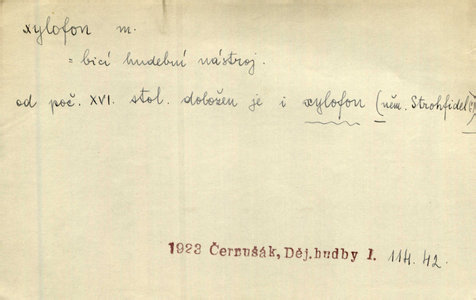 xylofon m.
= bicí hudební nástroj.
od poč. XVI. stol. doložen je i xylofon (něm. Strohfidel
1923 Černušák, Děj. hudby I. 114. 42.